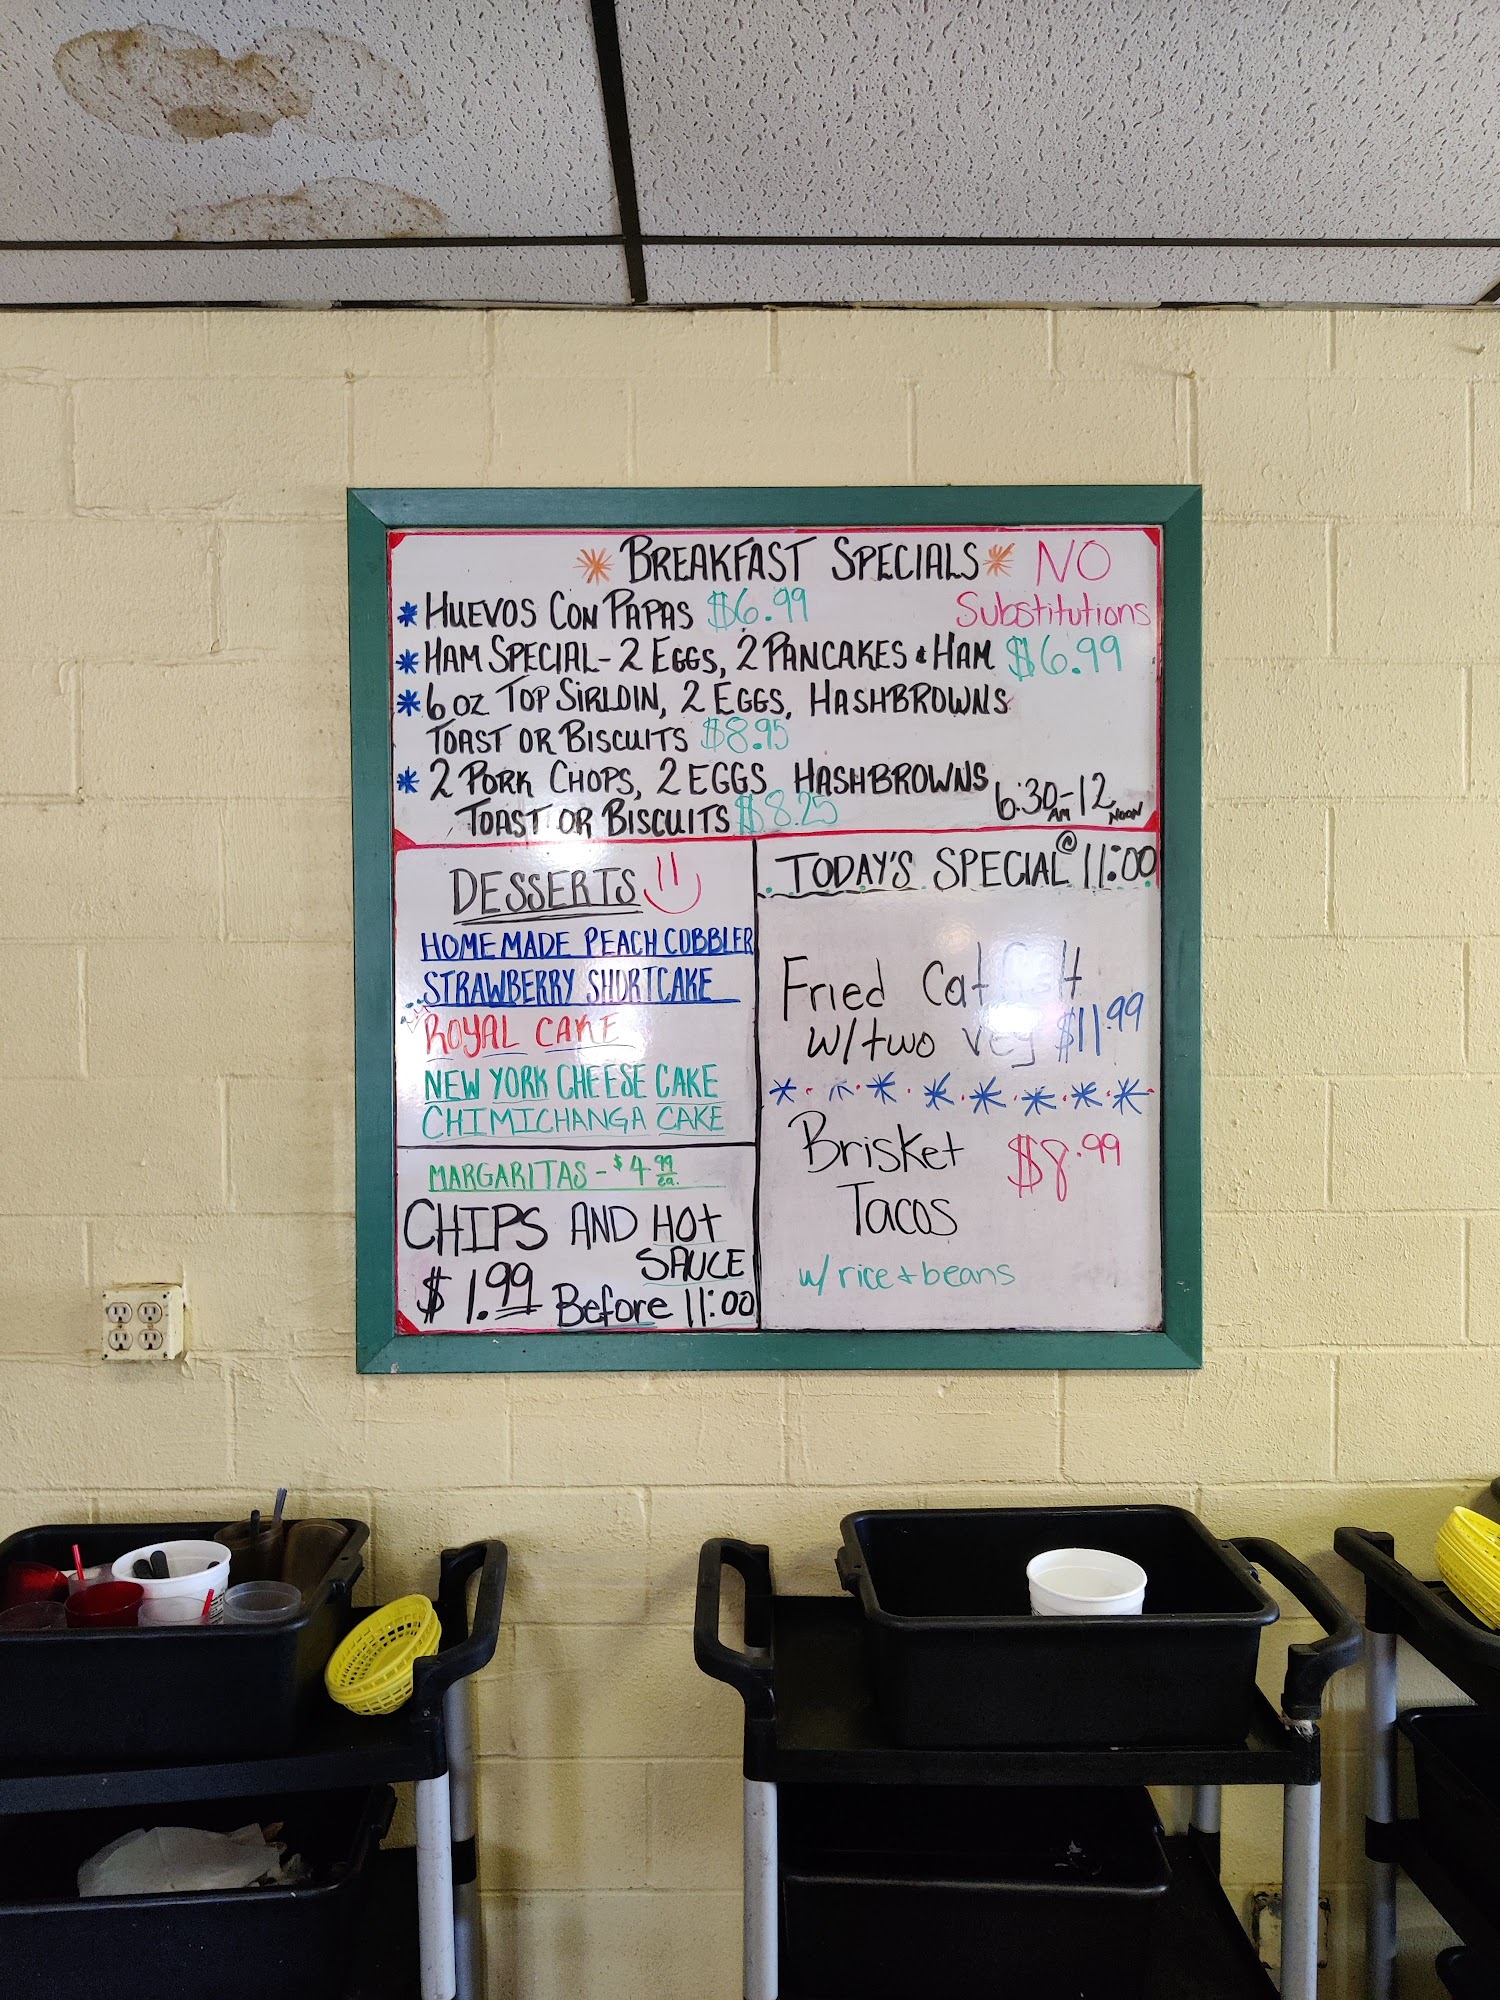 BREAKFAST SPECIALS NO
Substitutions
HUEVOS CON PAPAS $6.99
HAM SPECIAL - 2 EGGS, 2 PANCAKES & HAM $6.99
6 oz TOP SIRLOIN, 2 EGGS, HASHBROWNS
TOAST OR BISCUITS $8.95
2 PORK CHOPS, 2 EGGS HASHBROWNS
TOAST OR BISCUITS $8.25
6:30 AM - 12 NOON
DESSERTS
HOMEMADE PEACH COBBLER
STRAWBERRY SHORTCAKE
ROYAL CAKE
NEW YORK CHEESE CAKE
CHIMICHANGA CAKE
MARGARITAS - $4.99 ea.
CHIPS AND HOT
SAUCE
$1.99 Before 11:00
TODAY'S SPECIAL @ 11:00
Fried Catfish
w/ two veg $11.99
Brisket $8.99
Tacos
w/ rice + beans